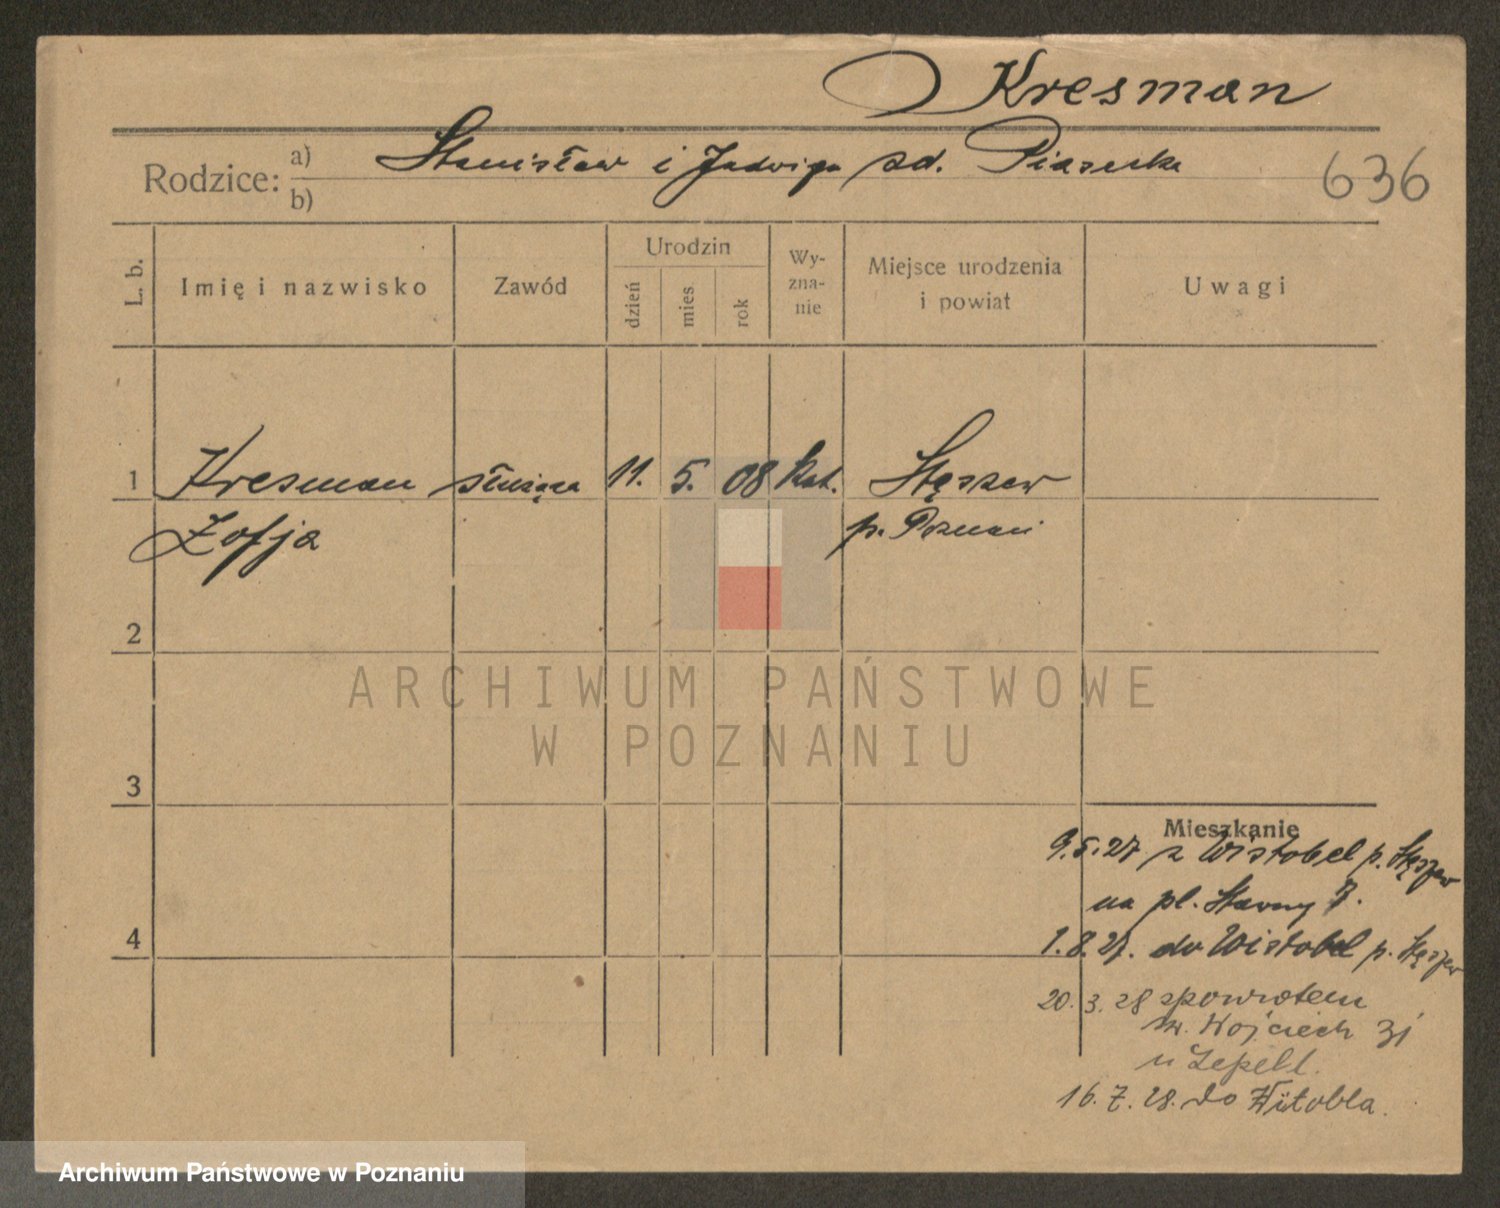 Kresman
Rodzice: a) Stanisław i Jadwiga zd. Piasecka
b)
636
L. b.
Imię i nazwisko
Zawód
Urodzin
dzień
mies
rok
Wy-
zna-
nie
Miejsce urodzenia
i powiat
Uwagi
1 Kresman służąca 11. 5. 08 kat. Stęszew
Zofja p. Poznań
2
3
4
ARCHIWUM PAŃSTWOWE
W POZNANIU
Mieszkanie
9.5.27 z Wistobel p. Stęszew
na pl. Sławny 7.
1.8.27. do Wistobel p. Stęszew
20.3.28 zpowrotem
św. Wojciech 31
u Zepelt.
16.7.28. do Witobla.
Archiwum Państwowe w Poznaniu